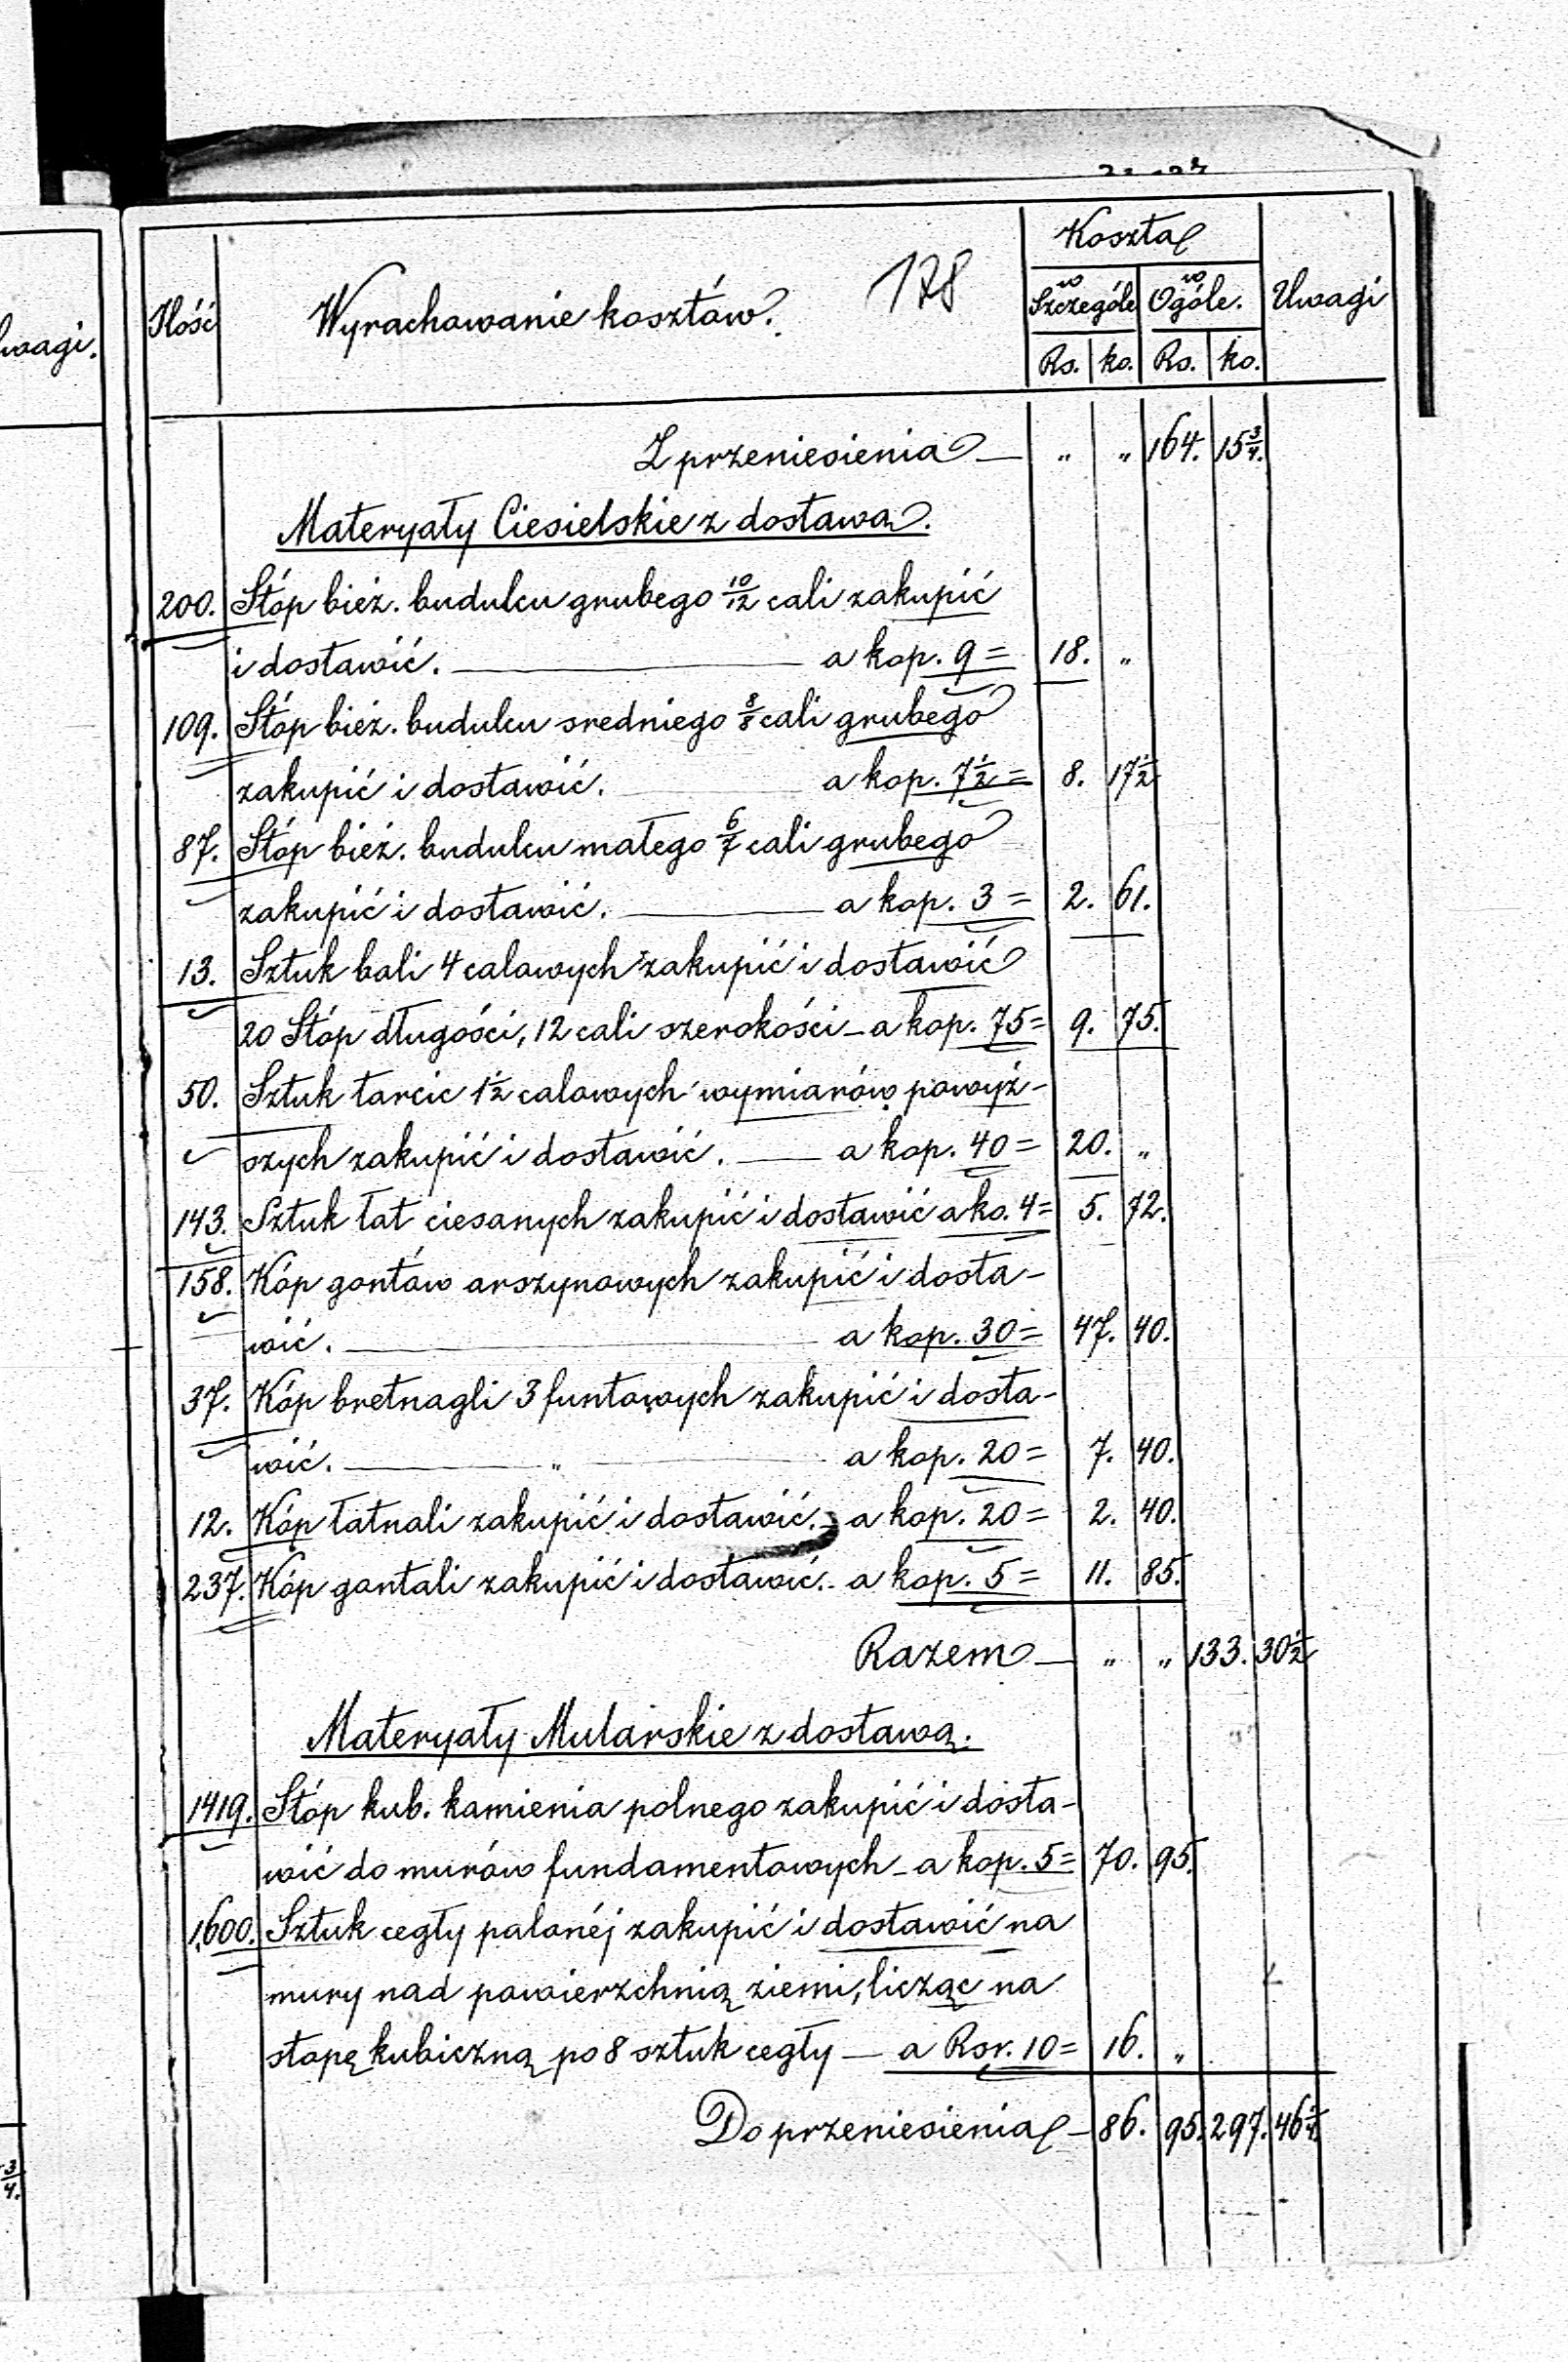 Uwagi.
Ilość
Wyrachowanie kosztów.
178
Koszta
w Szczególe
w Ogóle.
Uwagi
Rs. ko. Rs. ko.
Z przeniesienia — „ „ 164. 15 3/4.
Materyały Ciesielskie z dostawą.
200. Stóp bież. budulcu grubego 10/12 cali zakupić
i dostawić. — a kop. 9 = 18. „
109. Stóp bież. budulcu sredniego 8/8 cali grubego
zakupić i dostawić. a kop. 7 1/2 = 8. 17 1/2
87. Stóp bież. budulcu małego 6/7 cali grubego
zakupić i dostawić. — a kop. 3 = 2. 61.
13. Sztuk bali 4 calowych zakupić i dostawić
20 Stóp długości, 12 cali szerokości — a kop. 75 = 9. 75.
50. Sztuk tarcic 1 1/2 calowych wymiarów powyż-
szych zakupić i dostawić. — a kop. 40 = 20. „
143. Sztuk łat ciesanych zakupić i dostawić a ko. 4 = 5. 72.
158. Kóp gontów arszynowych zakupić i dosta-
wić. — a kop. 30 = 47. 40.
37. Kóp bretnagli 3 funtowych zakupić i dosta-
wić. — „ — a kop. 20 = 7. 40.
12. Kóp łatnali zakupić i dostawić. — a kop. 20 = 2. 40.
237. Kóp gontali zakupić i dostawić. — a kop. 5 = 11. 85.
Razem — „ „ 133. 30 1/2
Materyały Mularskie z dostawą.
1419. Stóp kub. kamienia polnego zakupić i dosta-
wić do murów fundamentowych — a kop. 5 = 70. 95.
1,600. Sztuk cegły palonéj zakupić i dostawić na
mury nad powierzchnią ziemi, licząc na
stopę kubiczną po 8 sztuk cegły — a Rsr. 10 = 16. „
Do przeniesienia — 86. 95. 297. 46 1/4
3/4.